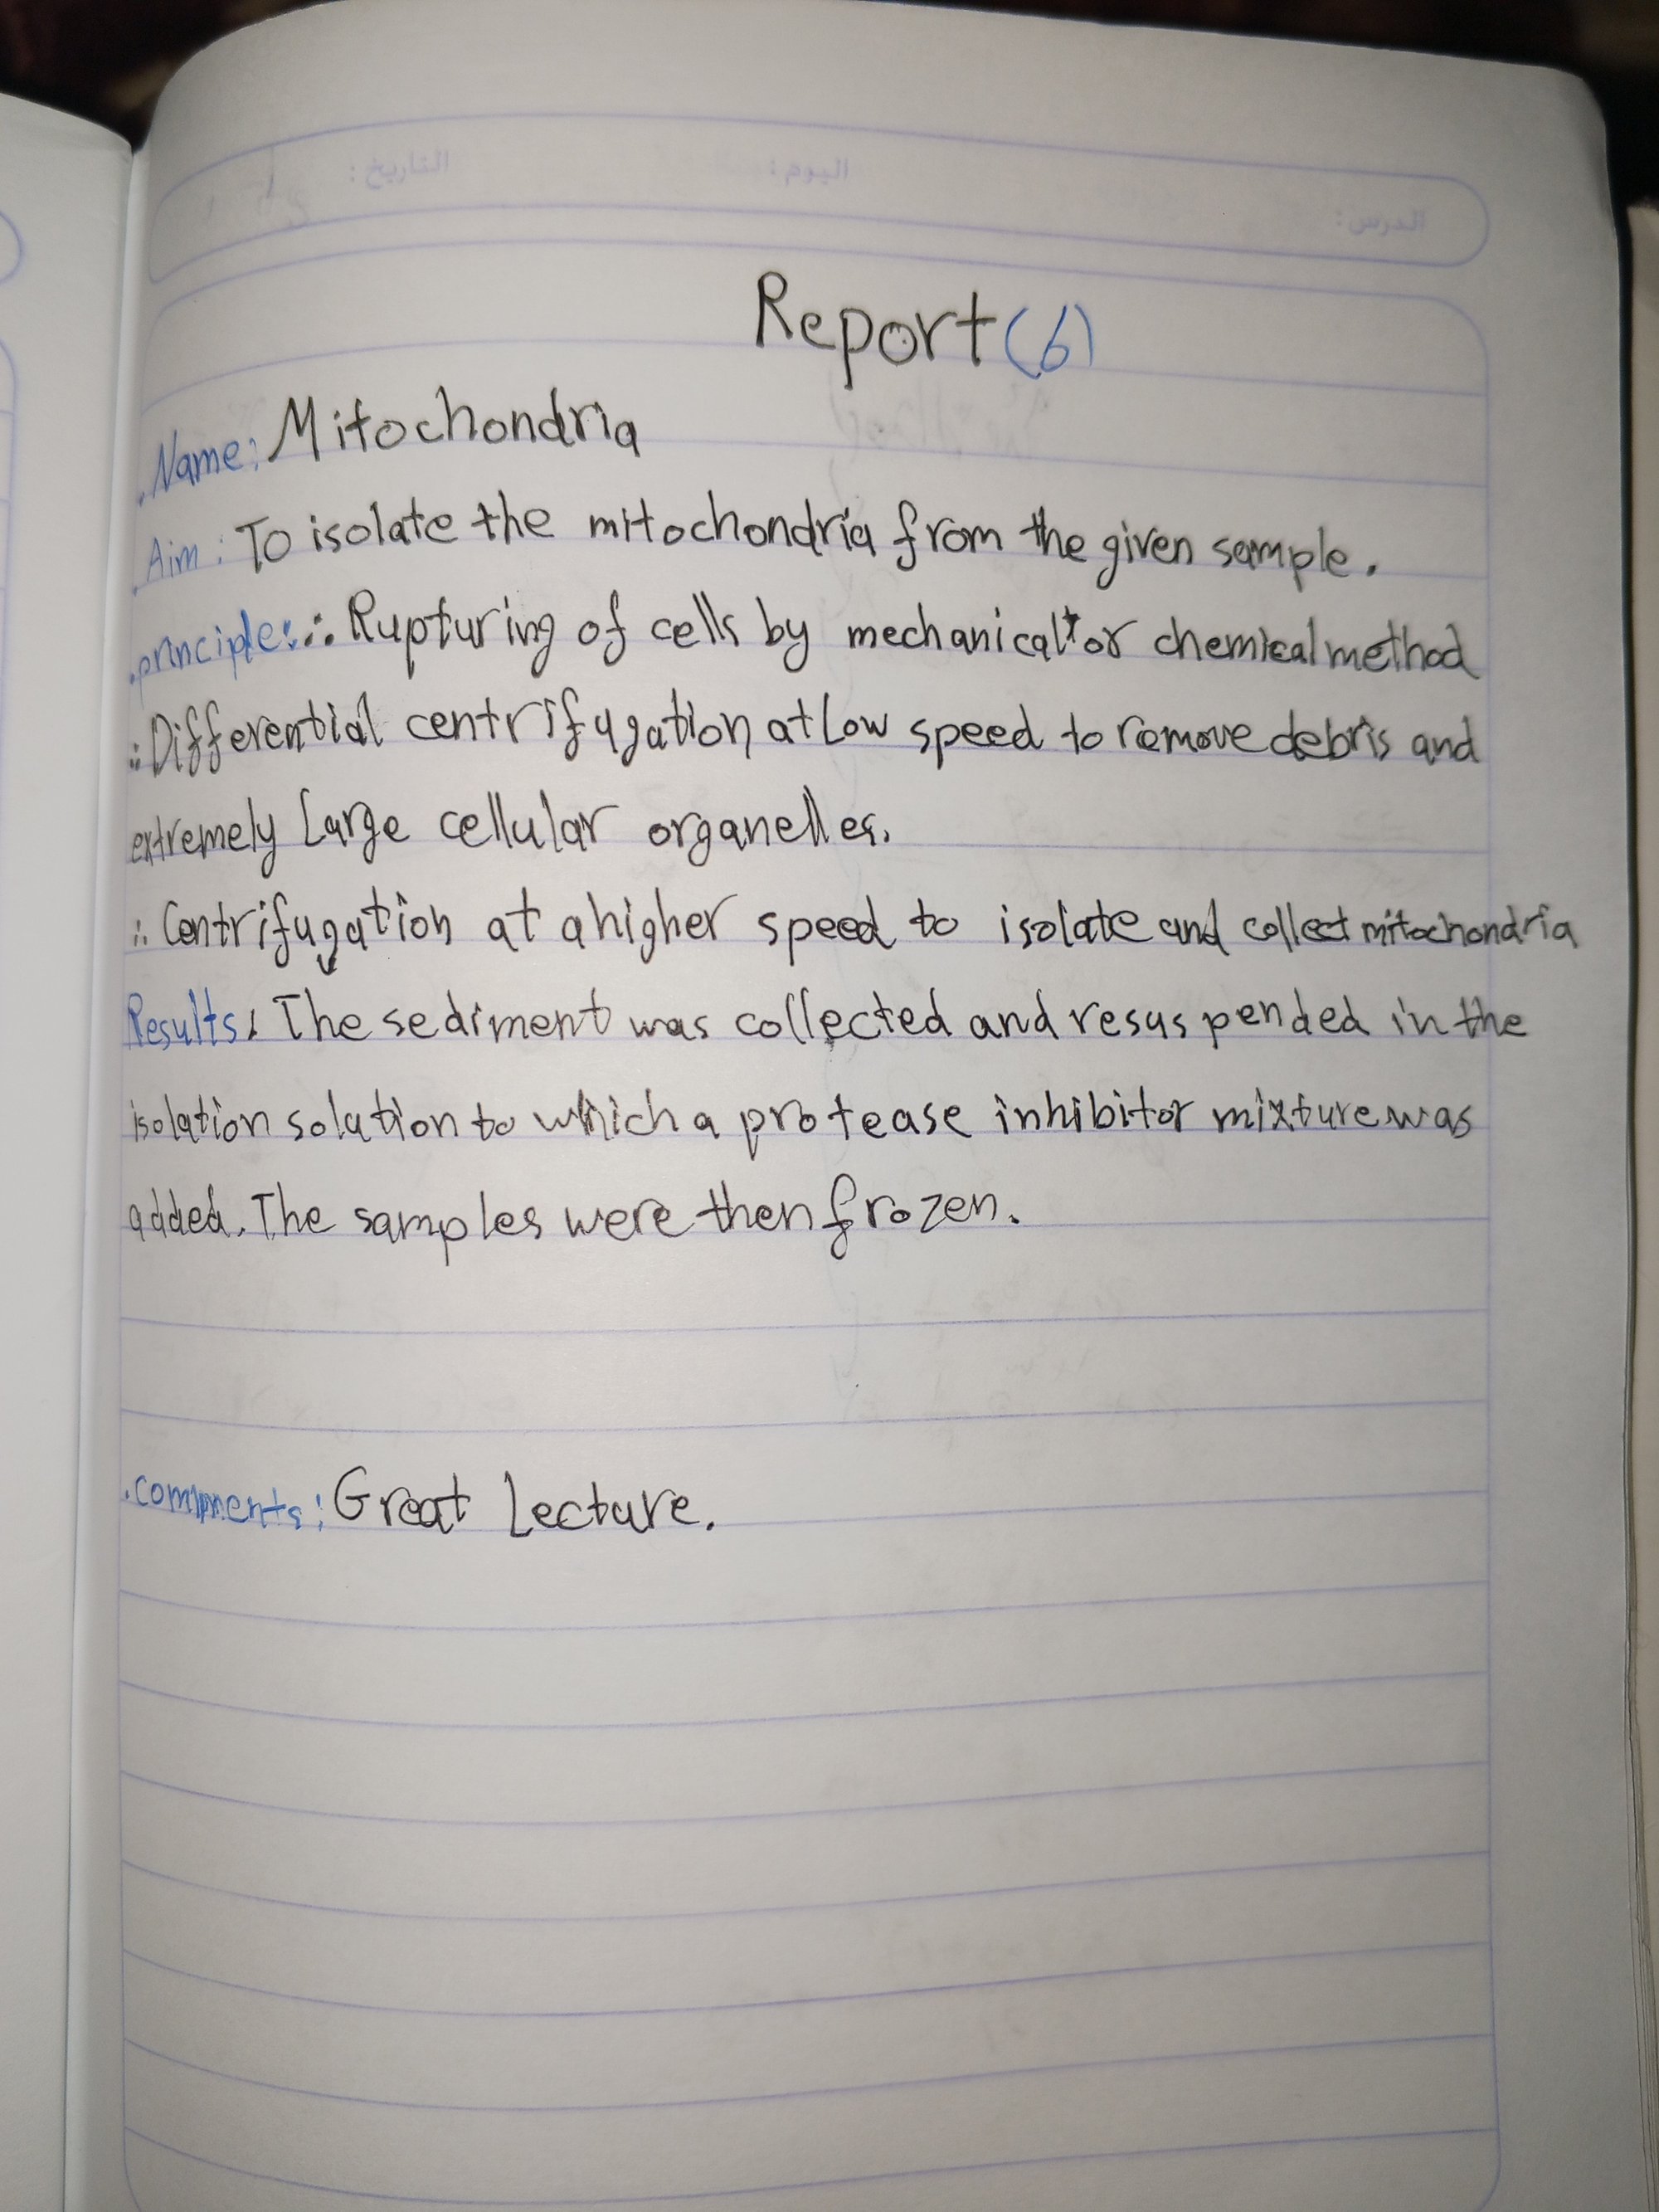 التاريخ :
اليوم :
الدرس :
Report (6)
.Name: Mitochondria
.Aim: To isolate the mitochondria from the given sample.
.principle: ∴ Rupturing of cells by mechanical or chemical method
∴ Differential centrifugation at Low speed to remove debris and
extremely Large cellular organelles.
∴ Centrifugation at a higher speed to isolate and collect mitochondria
Results: The sediment was collected and resuspended in the
isolation solution to which a protease inhibitor mixture was
added. The samples were then frozen.
.comments: Great Lecture.